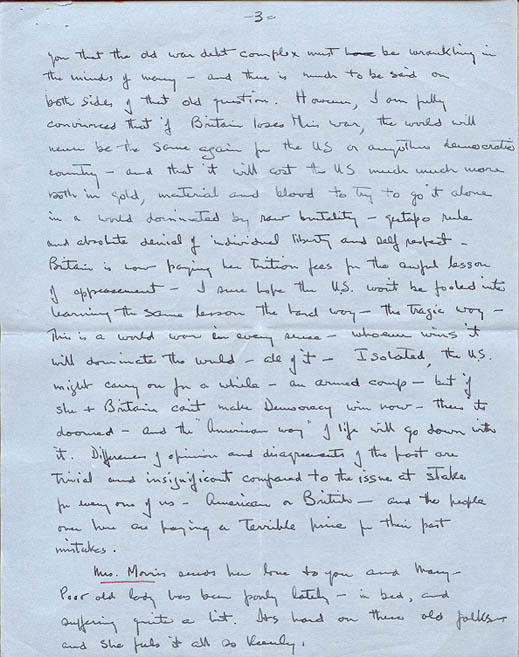 - 3 -
you that the old war debt complex must be wrankling in
the minds of many - and there is much to be said on
both sides of that old question. However, I am fully
convinced that if Britain loses this war, the world will
never be the same again for the US or any other democratic
country - and that it will cost the US much much more
both in gold, material and blood to try to go it alone
in a world dominated by raw brutality - gestapo rule
and absolute denial of individual liberty and self respect -
Britain is now paying her tuition fees for the awful lesson
of appeasement - I sure hope the U.S. won't be fooled into
learning the same lesson the hard way - the tragic way -
This is a world war in every sense - whoever wins it
will dominate the world - all of it - Isolated, the U.S.
might carry on for a while - an armed camp - but if
she + Britain can't make Democracy win now - then its
doomed - and the "American way" of life will go down with
it. Differences of opinion and disagreements of the past are
trivial and insignificant compared to the issue at stake
for every one of us - American or British - and the people
over here are paying a terrible price for their past
mistakes.
Mrs. Morris sends her love to you and Mary -
Poor old lady has been poorly lately - in bed, and
suffering quite a bit. Its hard on these old folks -
and she feels it all so keenly.